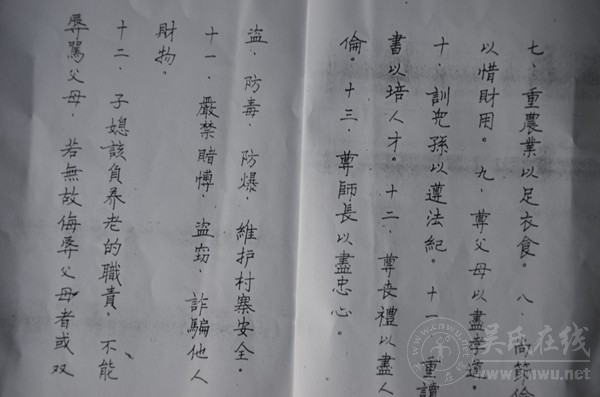 七、重農業以足衣食。八、尚節儉
以惜財用。九、尊父母以盡孝道。
十、訓兒孫以遵法紀。十一、重讀
書以培人才。十二、尊喪禮以盡人
倫。十三、尊師長以盡忠心。
盜、防毒、防爆，維护村寨安全。
十一、嚴禁賭博、盜窃、詐騙他人
財物。
十二、子媳該負养老的職責，不能
辱駡父母，若無故侮辱父母者或双
吴氏在线
www.cnwu.net